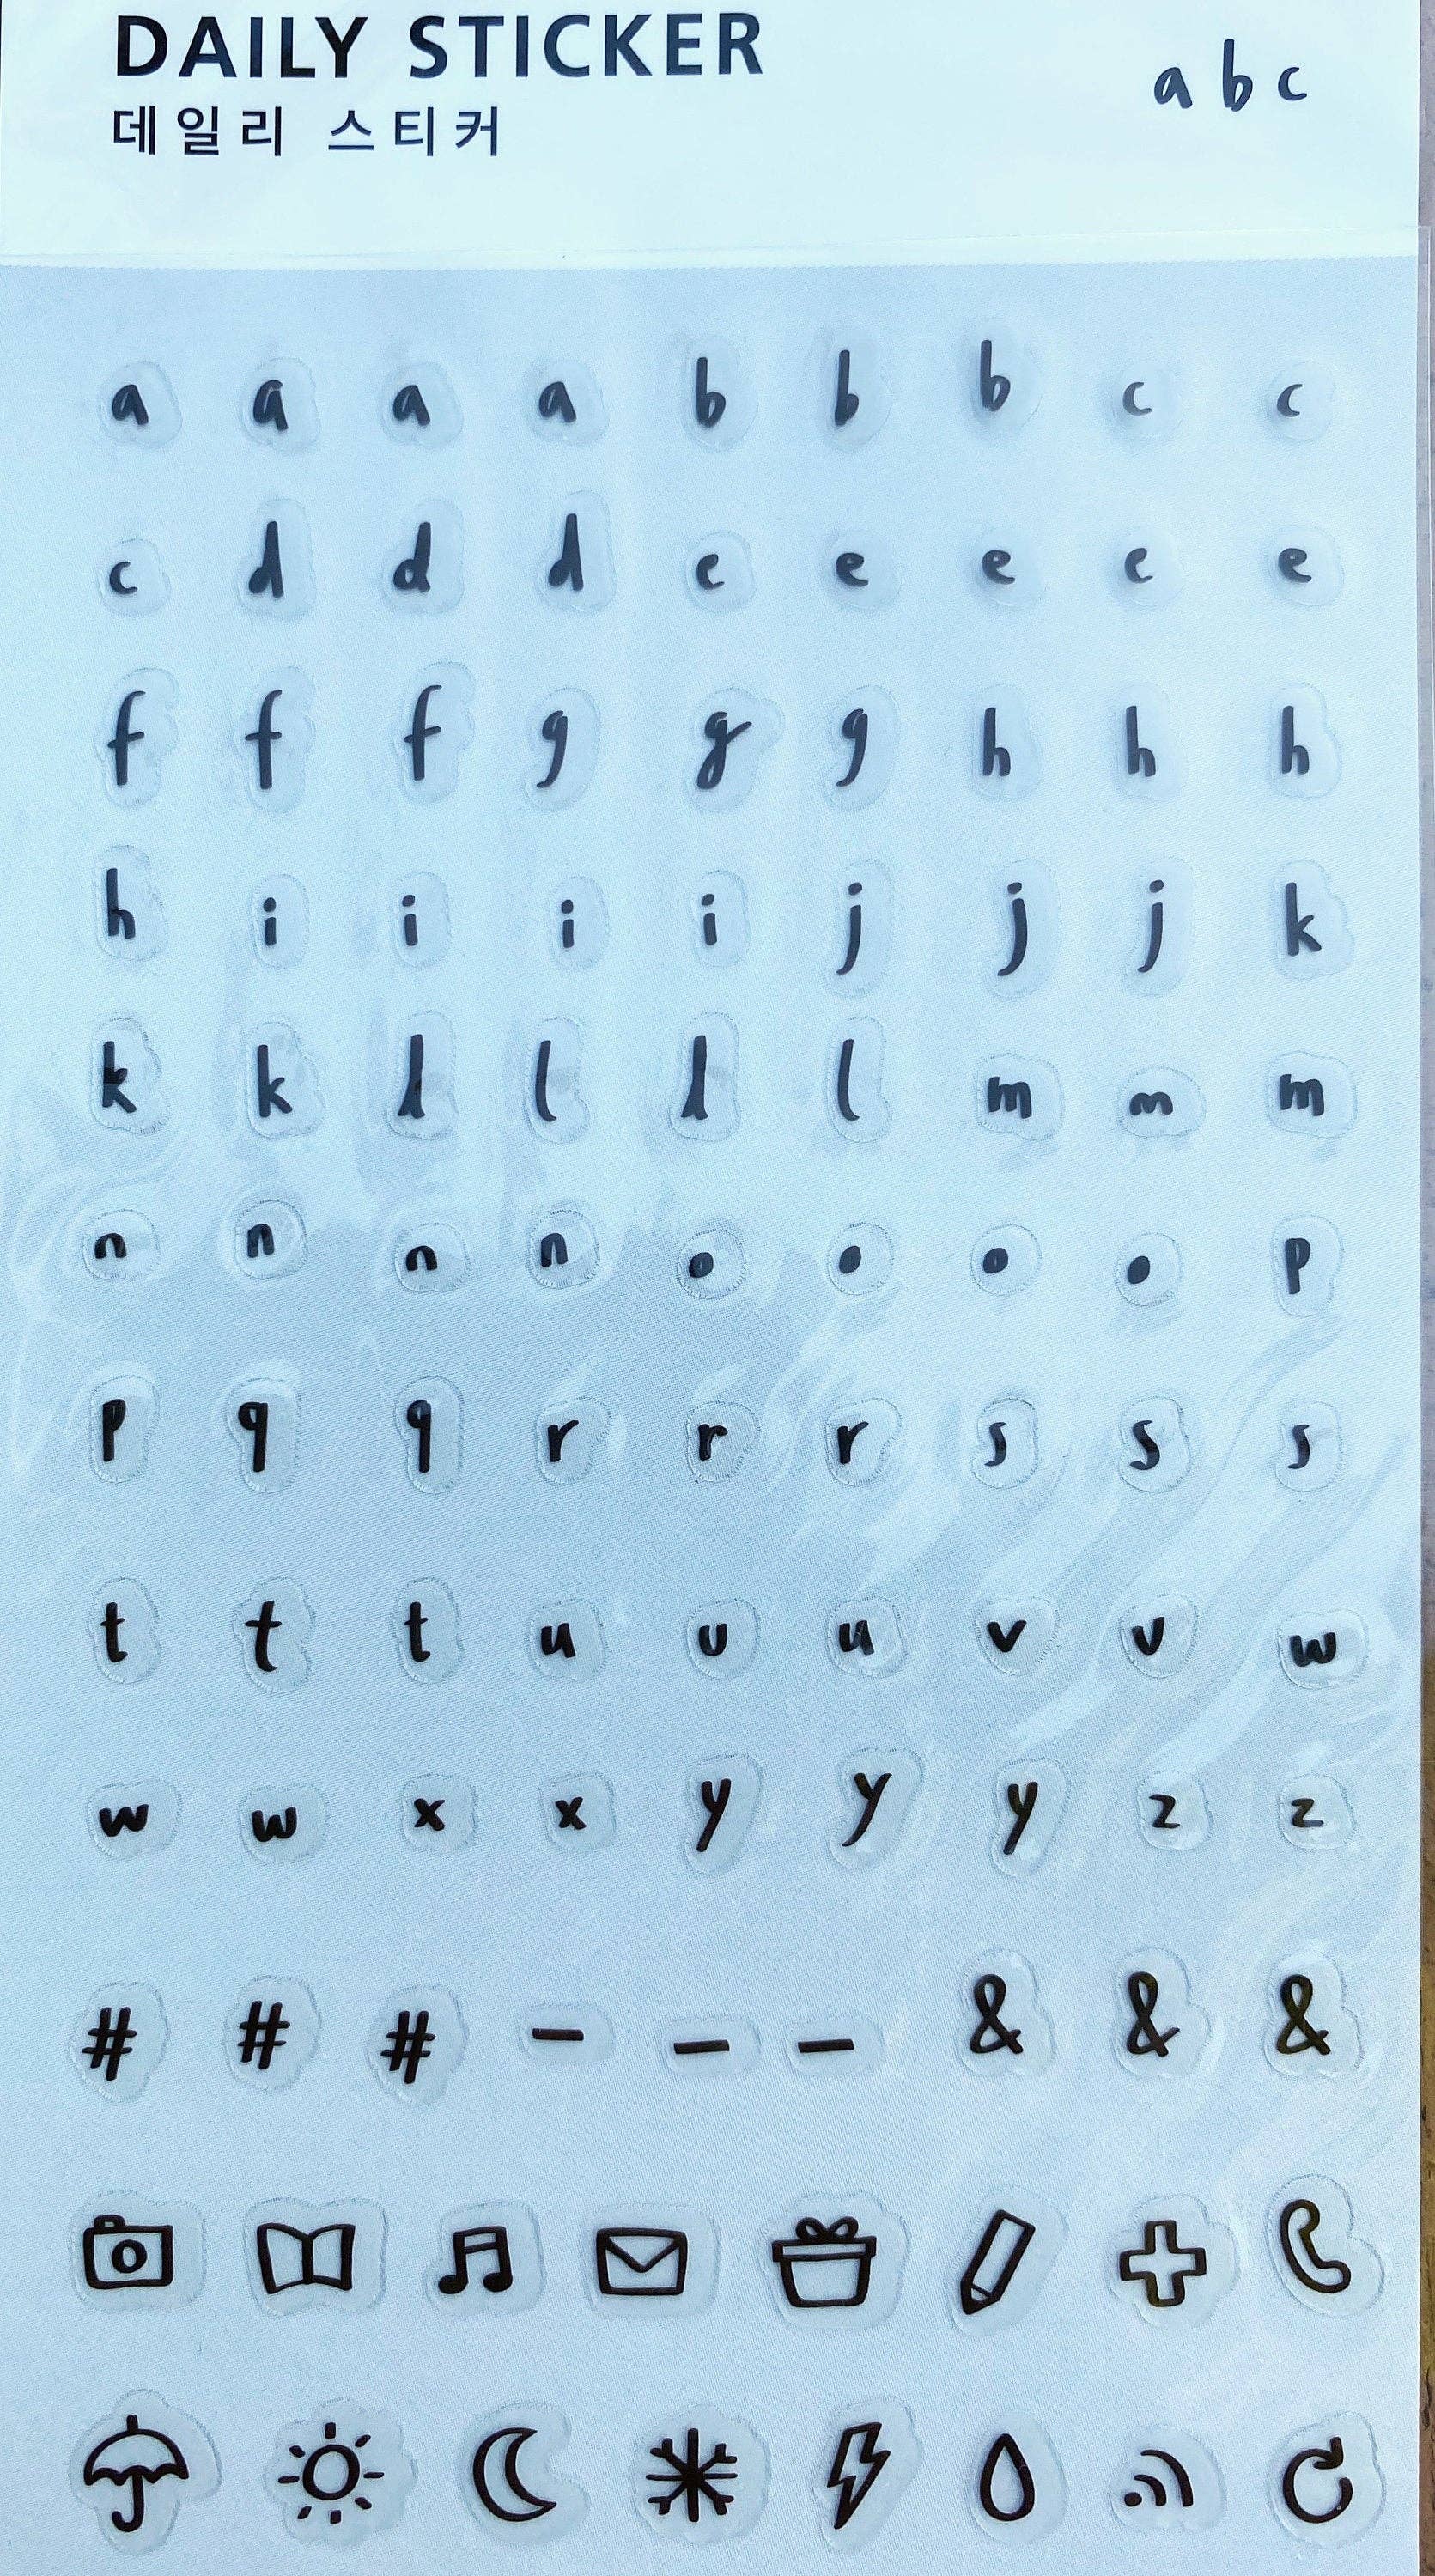 DAILY STICKER
데일리 스티커
a b c
a a a a b b b c c
c d d d e e e e e
f f f g g g h h h
h i i i i j j j k
k k l l l l m m m
n n n n o o o o p
p q q r r r s s s
t t t u u u v v w
w w x x y y y z z
# # # - - - & & &